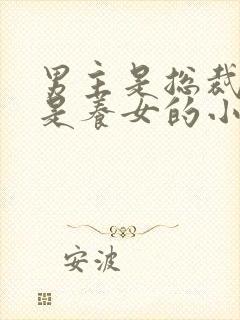 男主是总裁
是养女的小
安波